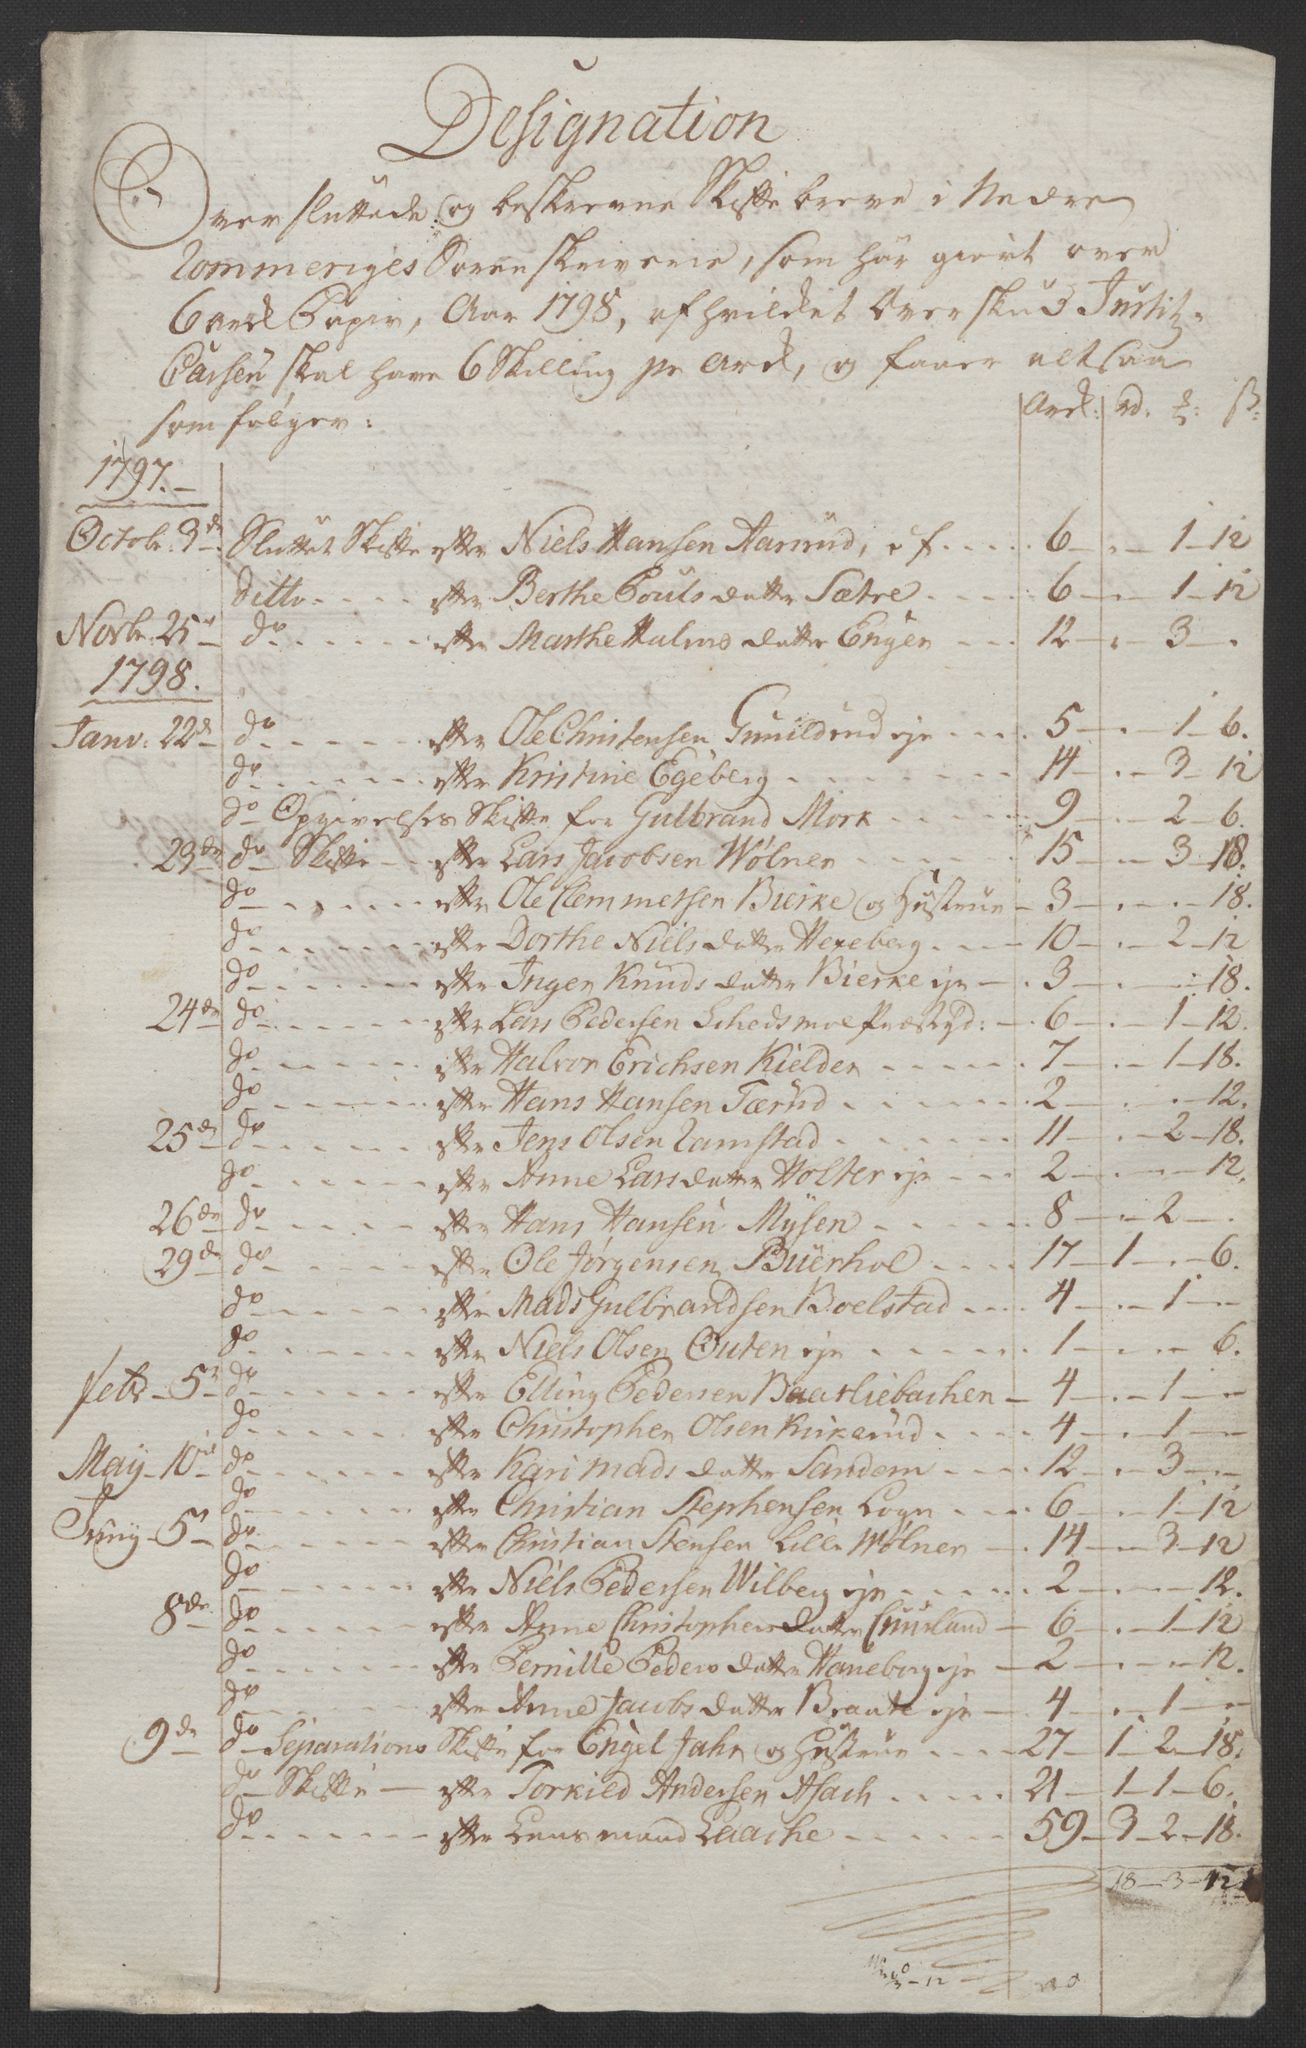 Designation
Over sluttede og beskrevne Skifte breve i Nedre
Rommeriges Sorenskriverie, som har giort over
6 Ark Papir, Aar 1798, af hvilket Overskud Justitz-
Cassen skal have 6 Skilling pr Ark, og faaer altsaa
som følger:
Ark: rd. ß:
1797.
Octobr: 3de Sluttet Skifte efter Niels Hansen Aamud, af 6 1 12
Ditto efter Berthe Pouls datter Sætre 6 1 12
Novbr. 25 do efter Marthe Halvors datter Engen 12 3
1798.
Janv: 22de do efter Ole Christensen Gunildrud eje 5 1 6.
do efter Kristine Egeberg 14 3 12
do Opgivelses Skifte for Gulbrand Mork 9 2 6.
23de do Skifte efter Lars Jacobsen Wølner 15 3 18.
do efter Ole Clemmetsen Bierke og Hustrue 3 18.
do efter Dorthe Niels datter Hexeberg 10 2 12
do efter Inger Knuds datter Bierke eje 3 18.
24de do efter Lars Pedersen Schedsmoe Præstgd: 6 1 12.
do efter Halvor Erichsen Kielder 7 1 18.
do efter Hans Hansen Tærud 2 12.
25de do efter Jens Olsen Ramstad 11 2 18.
do efter Anne Lars datter Holter eje 2 12.
26de do efter Hans Hansen Mysen 8 2
29de do efter Ole Jørgensen Buerhol 17 1 6.
do efter Mads Gulbrandsen Boelstad 4 1
do efter Niels Olsen Outen eje 1 6.
Febr 5te do efter Elling Pedersen Baarliebachen 4 1
do efter Christopher Olsen Kirkerud 4 1
May 10de do efter Kari Mads datter Sandem 12 3
do efter Christian Stephensen Logn 6 1 12
Juny 5te do efter Christian Stensen Lille Wølner 14 3 12
do efter Niels Pedersen Wilberg eje 2 12.
8de do efter Anne Christophers datter Cuurland 6 1 12
do efter Pernille Peders datter Haneborg eje 2 12.
do efter Anne Jacobs datter Braate eje 4 1
9de do Separations Skifte for Engel Jahn og Hustrue 27 1 2 18.
do Skifte efter Torkild Andersen Asach 21 1 1 6.
do efter Lensmand Laache 59 3 2 18.
18 3 12